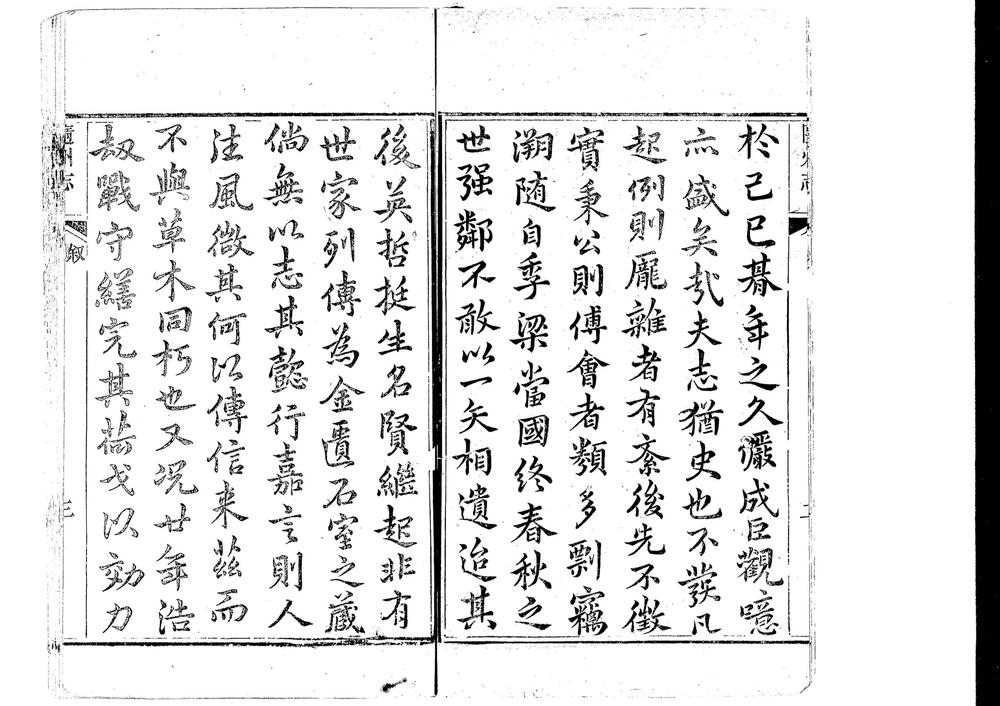 於己巳朞年之久儼成臣觀噫
亦盛矣哉夫志猶史也不發凡
起例則厖雜者有紊後先不徵
實秉公則傅會者類多剽竊
溯随自季梁當國終春秋之
世强鄰不敢以一矢相遺迨其
後英哲挺生名賢繼起非有
世家列傳為金匱石室之藏
倘無以志其懿行嘉言則人
往風微其何以傳信来兹而
不與草木同朽也又况廿年浩
刼戰守繕完其荷戈以効力
隨州志
叙
三